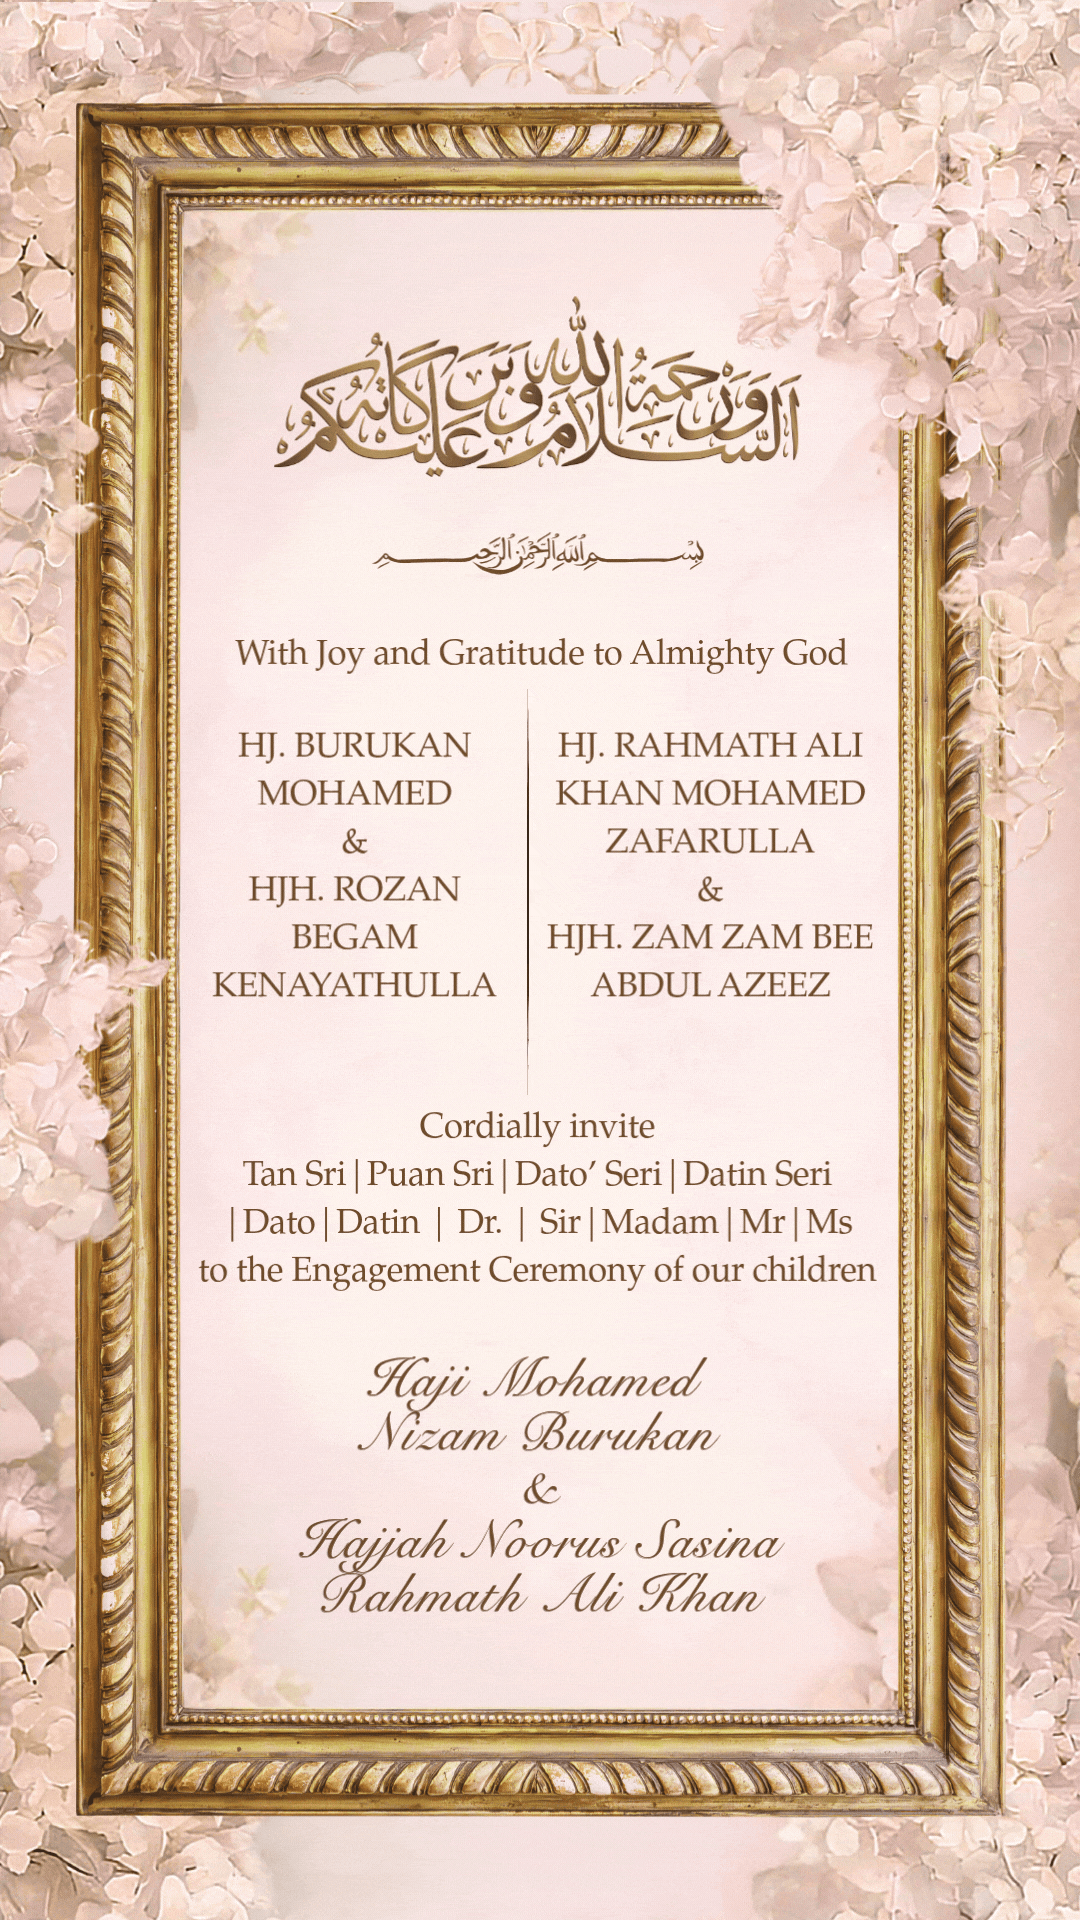 السَّلَامُ عَلَيْكُمُ وَرَحْمَةُ اللهِ وَبَرَكَاتُهُ
بِسْمِ اللهِ الرَّحْمٰنِ الرَّحِيمِ
With Joy and Gratitude to Almighty God
HJ. BURUKAN
MOHAMED
&
HJH. ROZAN
BEGAM
KENAYATHULLA
HJ. RAHMATH ALI
KHAN MOHAMED
ZAFARULLA
&
HJH. ZAM ZAM BEE
ABDUL AZEEZ
Cordially invite
Tan Sri|Puan Sri|Dato’ Seri|Datin Seri
|Dato|Datin | Dr. | Sir|Madam|Mr|Ms
to the Engagement Ceremony of our children
Haji Mohamed
Nizam Burukan
&
Hajjah Noorus Sasina
Rahmath Ali Khan